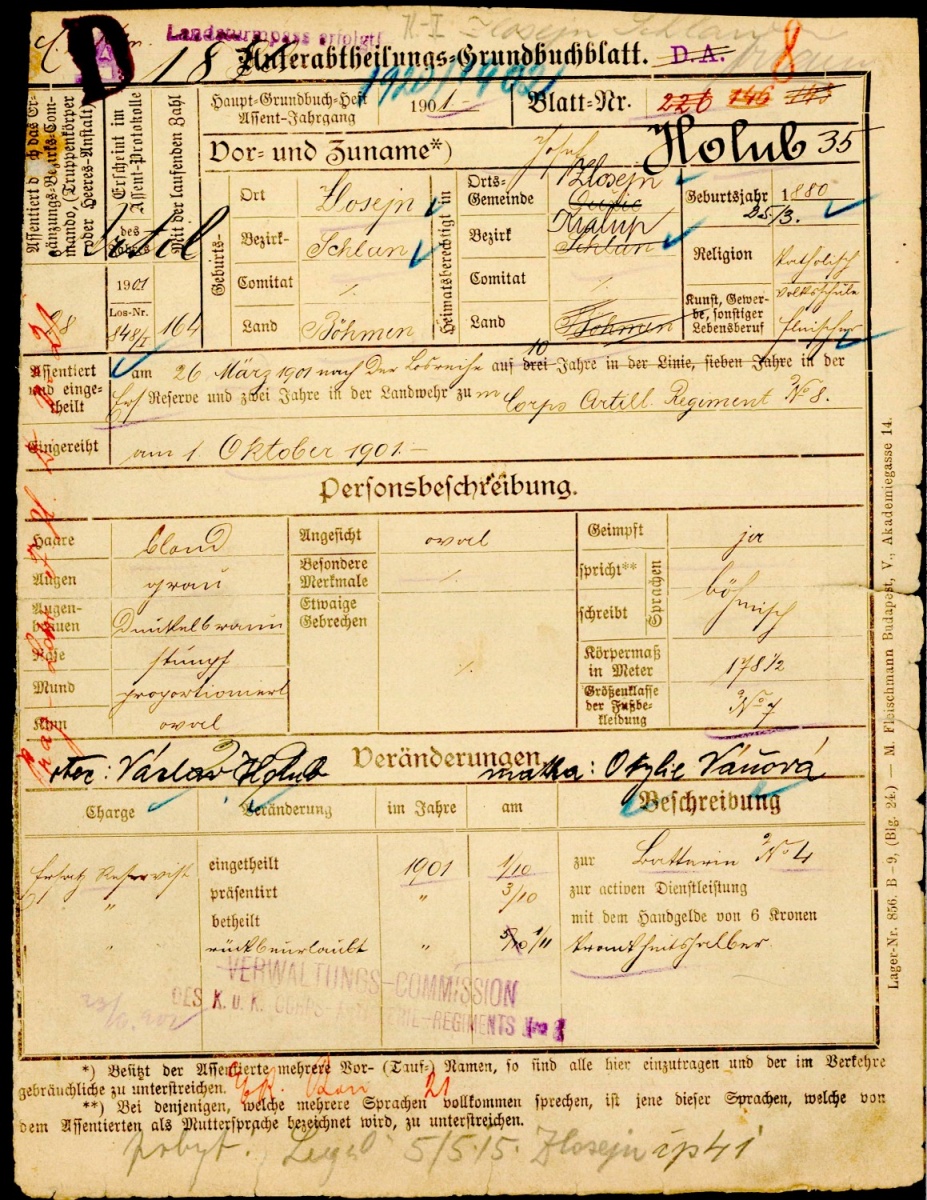 Landsturmpass erfolgt!
D 18
Unterabtheilungs-Grundbuchblatt. D. A. 8
Haupt-Grundbuch-Heft
Assent-Jahrgang 1901
Blatt-Nr. 226 146 143
Assentiert durch das Ergänzungs-Bezirks-Commando, Truppenkörper (oder Heeres-Anstalt)
Erscheint im Assent-Protokolle
des Jahres
1901
Los-Nr.
848/I
Mit der laufenden Zahl
164
28
Vor- und Zuname*) Josef Holub 35
Geburts-
Ort Zlosejn
Bezirk Schlan
Comitat ·/.
Land Böhmen
Heimatsberechtigt in
Orts-Gemeinde Zlosejn
Bezirk Kralup Schlan
Comitat ·/.
Land Böhmen
Geburtsjahr 1880
25/3.
Religion katholisch
Kunst, Gewerbe, sonstiger Lebensberuf
Volksschule
Fleischer
Assentiert und eingetheilt
am 26 März 1901 nach der Losreihe auf drei 10 Jahre in der Linie, sieben Jahre in der
Ers Reserve und zwei Jahre in der Landwehr zum Corps Artill. Regiment No 8.
Eingereiht am 1. Oktober 1901.–
Personsbeschreibung.
Haare blond
Augen grau
Augenbrauen Dunkelbraun
Nase stumpf
Mund proportioniert
Kinn oval
Angesicht oval
Besondere Merkmale ·/.
Etwaige Gebrechen ·/.
Geimpft ja
spricht**
schreibt
Sprachen
böhmisch
Körpermaß in Meter 178 1/2
Größenklasse der Fußbekleidung No 7
Veränderungen
otec: Václav Holub matka: Otylie Váňová
Charge Veränderung im Jahre am Beschreibung
Ersatz Reservist eingetheilt 1901 1/10 zur Batterie No 4
" präsentirt " 3/10 zur activen Dienstleistung
betheilt mit dem Handgelde von 6 Kronen
" rückbeurlaubt " 1/11 krankheitshalber.
VERWALTUNGS-COMMISSION
DES K. u. K. CORPS-ARTILLERIE-REGIMENTS No 8
*) Besitzt der Assentierte mehrere Vor- (Tauf-) Namen, so sind alle hier einzutragen und der im Verkehre
gebräuchliche zu unterstreichen.
21
**) Bei denjenigen, welche mehrere Sprachen vollkommen sprechen, ist jene dieser Sprachen, welche von
dem Assentierten als Muttersprache bezeichnet wird, zu unterstreichen.
pobyt. 5/5.15. Zlosejn čp 41
Lager-Nr. 856. B–9, (Blg. 24) — M. Fleischmann Budapest, V., Akademiegasse 14.